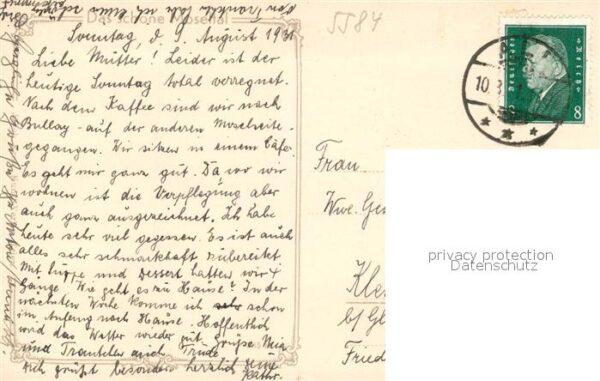 Das schöne Moseltal
Sonntag, d. 9. August 1931
Liebe Mutter! Leider ist der
heutige Sonntag total verregnet.
Nach dem Kaffee sind wir nach
Bullay - auf der anderen Moselseite -
gegangen. Wir sitzen in einem Café.
Es geht mir ganz gut. Da, wo wir
wohnen ist die Verpflegung aber
auch ganz ausgezeichnet. Ich habe
heute sehr viel gegessen. Es ist auch
alles sehr schmackhaft zubereitet.
Mit Suppe und Dessert hatten wir 4
Gänge. Wie geht es zu Hause? In der
nächsten Woche komme ich schon
im Anfang nach Hause. Hoffentlich
wird das Wetter wieder gut. Grüße
und Trautchen auch.
Dich grüßt besonders herzlich
5584
Deutsches Reich
8
10.
Frau
Wwe. Ge
Kle
b/Gl
Fried
privacy protection
Datenschutz